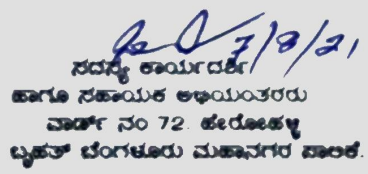 7/8/21
ಸದಸ್ಯ ಕಾರ್ಯದರ್ಶಿ
ಹಾಗೂ ಸಹಾಯಕ ಅಭಿಯಂತರರು
ವಾರ್ಡ್ ನಂ 72. ಹೇರೋಹಳ್ಳಿ
ಬೃಹತ್ ಬೆಂಗಳೂರು ಮಹಾನಗರ ಪಾಲಿಕೆ.